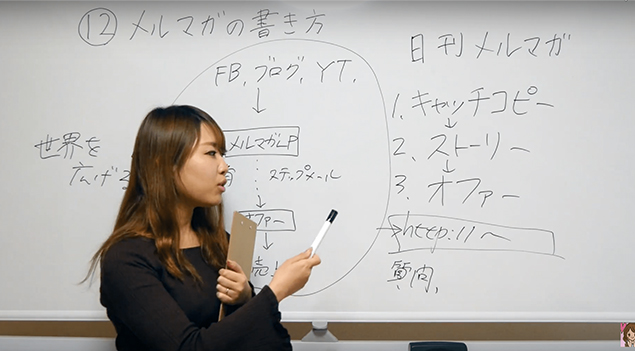 ⑫メルマガの書き方
FB, ブログ, YT,
メルマガLP
ステップメール
世界を
広げる
日刊メルマガ
1. キャッチコピー
2. ストーリー
3. オファー
http://~
質問,